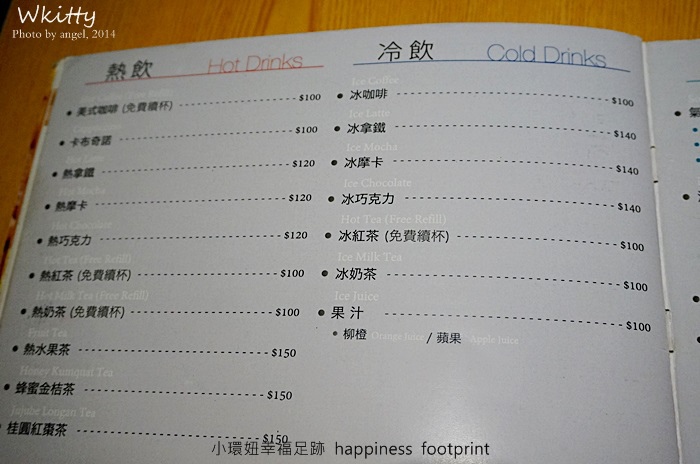 Wkitty
Photo by angel, 2014
熱飲 Hot Drinks
美式咖啡 (免費續杯) $100
卡布奇諾 $100
熱拿鐵 $120
Hot Mocha
熱摩卡 $120
Hot Chocolate
熱巧克力 $120
Hot Tea (Free Refill)
熱紅茶 (免費續杯) $100
Hot Milk Tea (Free Refill)
熱奶茶 (免費續杯) $100
Fruit Tea
熱水果茶 $150
Honey Kumquat Tea
蜂蜜金桔茶 $150
Jujube Longan Tea
桂圓紅棗茶 $150
冷飲 Cold Drinks
Ice Coffee
冰咖啡 $100
Ice Latte
冰拿鐵 $140
Ice Mocha
冰摩卡 $140
Ice Chocolate
冰巧克力 $140
Hot Tea (Free Refill)
冰紅茶 (免費續杯) $100
Ice Milk Tea
冰奶茶 $100
Ice Juice
果汁 $100
柳橙 Orange Juice / 蘋果 Apple Juice
小環妞幸福足跡 happiness footprint